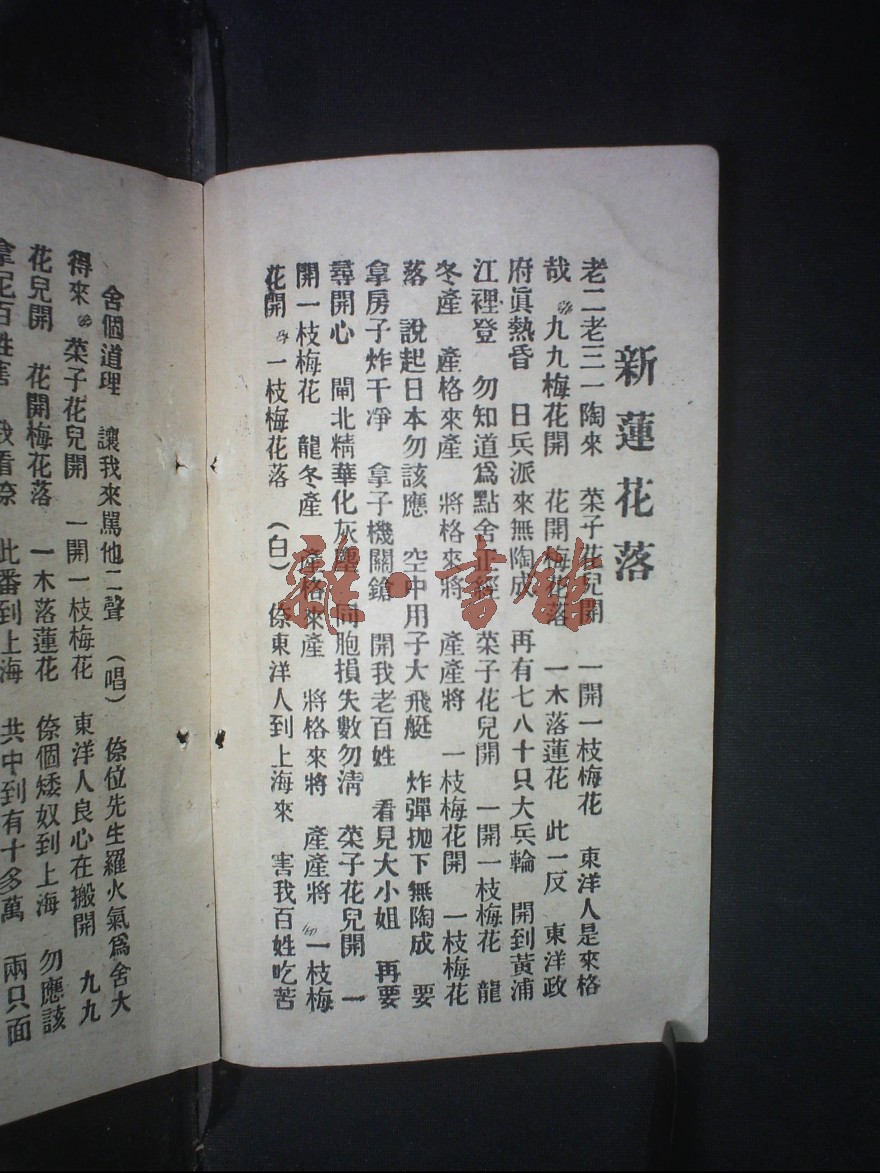 新蓮花落
老二老三一陶來 菜子花兒開 一開一枝梅花 東洋人是來格
哉 九九梅花開 花開梅花落 一木落蓮花 此一反 東洋政
府眞熱昏 日兵派來無陶成 再有七八十只大兵輪 開到黃浦
江裡登 勿知道爲點舍正經 菜子花兒開 一開一枝梅花 龍
冬產 產格來產 將格來將 產產將 一枝梅花開 一枝梅花
落 說起日本勿該應 空中用子大飛艇 炸彈拋下無陶成 要
拿房子炸干凈 拿子機關鎗 開我老百姓 看見大小姐 再要
尋開心 閘北精華化灰塵 同胞損失數勿淸 菜子花兒開 一
開一枝梅花 龍冬產 產格來產 將格來將 產產將 一枝梅
花開 一枝梅花落 (白) 倷東洋人到上海來 害我百姓吃苦
舍個道理 讓我來罵他二聲 (唱) 倷位先生羅火氣爲舍大
得來 菜子花兒開 一開一枝梅花 東洋人良心在搬開 九九
花兒開 花開梅花落 一木落蓮花 倷個矮奴到上海 勿應該
拿 百姓害 我看倷 此番到上海 共中到有十多萬 兩只面
雜·書館